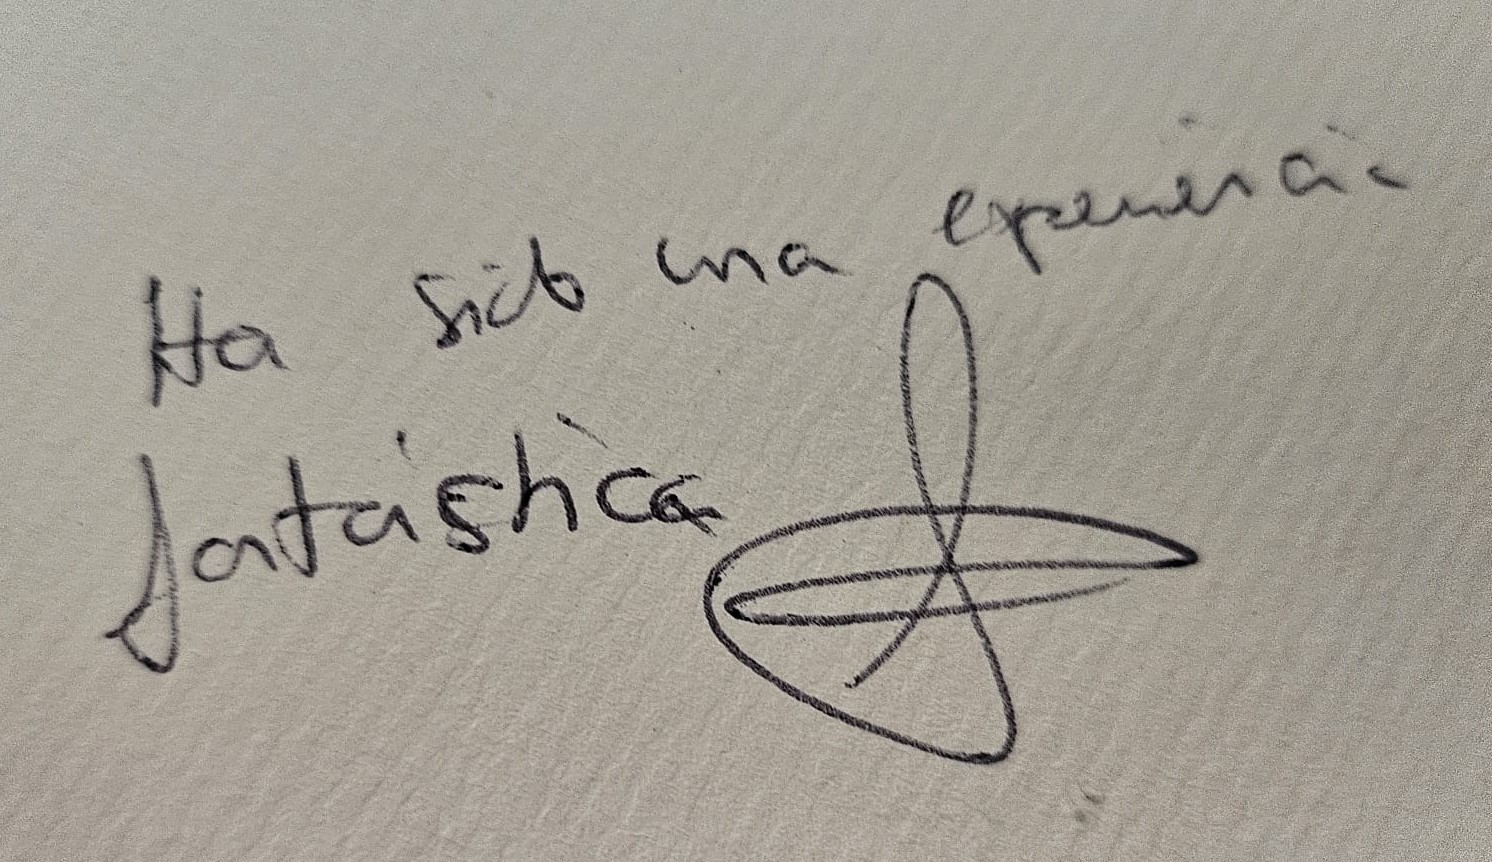 Ha sido una experiencia
fantástica